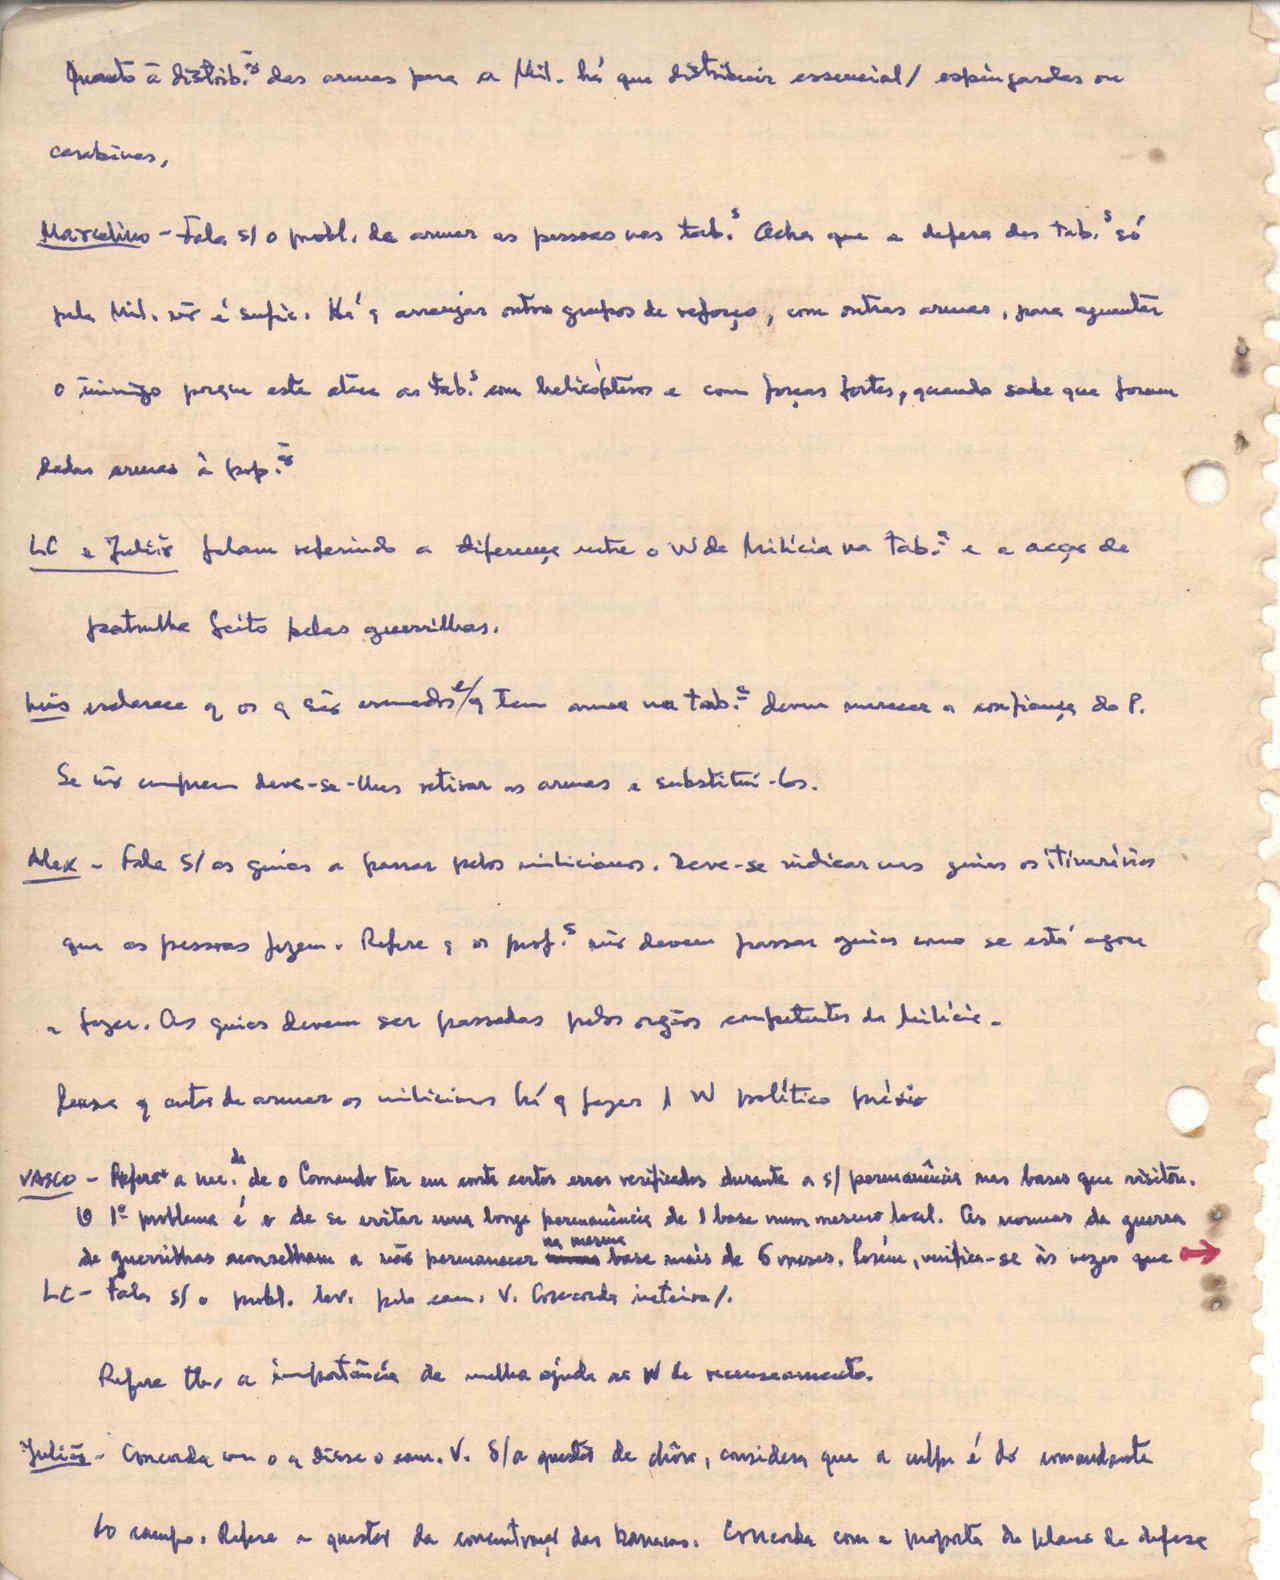 Quanto à distrib.ão das armas para a Mil. há que distribuir essencial/ espingardas ou
carabinas,
Marcelino - Fala s/ o probl. de armar as pessoas nas tab.s Acha que a defesa das tab.s só
pela Mil. não é sufic. Há q arranjar outros grupos de reforço, com outras armas, para aguentar
o inimigo porque este ataca as tab.s com helicópteros e com forças fortes, quando sabe que foram
dadas armas à pop.ão
LC e Julião falam referindo a diferença entre o W da Milícia na tab.a e a acção de
patrulha feita pelas guerrilhas.
Luís esclarece q os q são armados e/q tem arma na tab.a devem merecer a confiança do P.
Se não cumprem deve-se-lhes retirar as armas e substituí-los.
Alex - Fala s/ as guias a passar pelos milicianos. Deve-se indicar nas guias os itinerários
que as pessoas fazem. Refere q os prof.s não devem passar guias como se está agora
a fazer. As guias devem ser passadas pelos orgãos competentes da Milícia.
Pensa q antes de armar os milicianos há q fazer 1 W político prévio
VASCO - Refere a nec.de de o Comando ter em conta certos erros verificados durante a s/ permanência nas bases que visitou.
O 1º problema é o de se evitar uma longa permanência de 1 base num mesmo local. As normas da guerra
de guerrilhas aconselham a não permanecer na mesma base mais de 6 meses. Porém, verifica-se às vezes que →
LC - Fala s/ o probl. lev. pelo cam. V. Concorda inteira/.
Refere tb. a importância da melhor ajuda ao W de recenseamento.
Julião - Concorda com o q disse o cam. V. S/ a questão de chão, considera que a culpa é do comandante
do campo. Refere a questão da concentração das barracas. Concorda com a proposta do plano de defesa